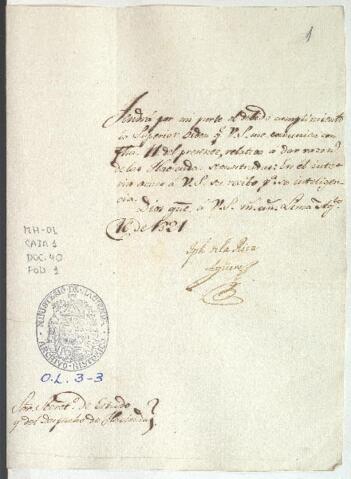 1
Tendrá por mi parte el debido cumplimiento
la Superior orden q.e V.S. me comunica con
fha. 11 del presente, relativa a dar razon
de las Haciendas secuestradas: En el inte-
rin aviso à V.S. su recibo p.a su inteligen-
cia.
Dios gue. à V.S. m.s an.s Lima Ag.to
16 de 1821
Jph. de la Riva
Aguero
MH-01
CAJA 1
DOC. 40
FOL. 1
MINISTERIO DE HACIENDA
ARCHIVO HISTORICO
O.L. 3-3
Sor. Secret.o de Estado
y del despacho de Hacienda